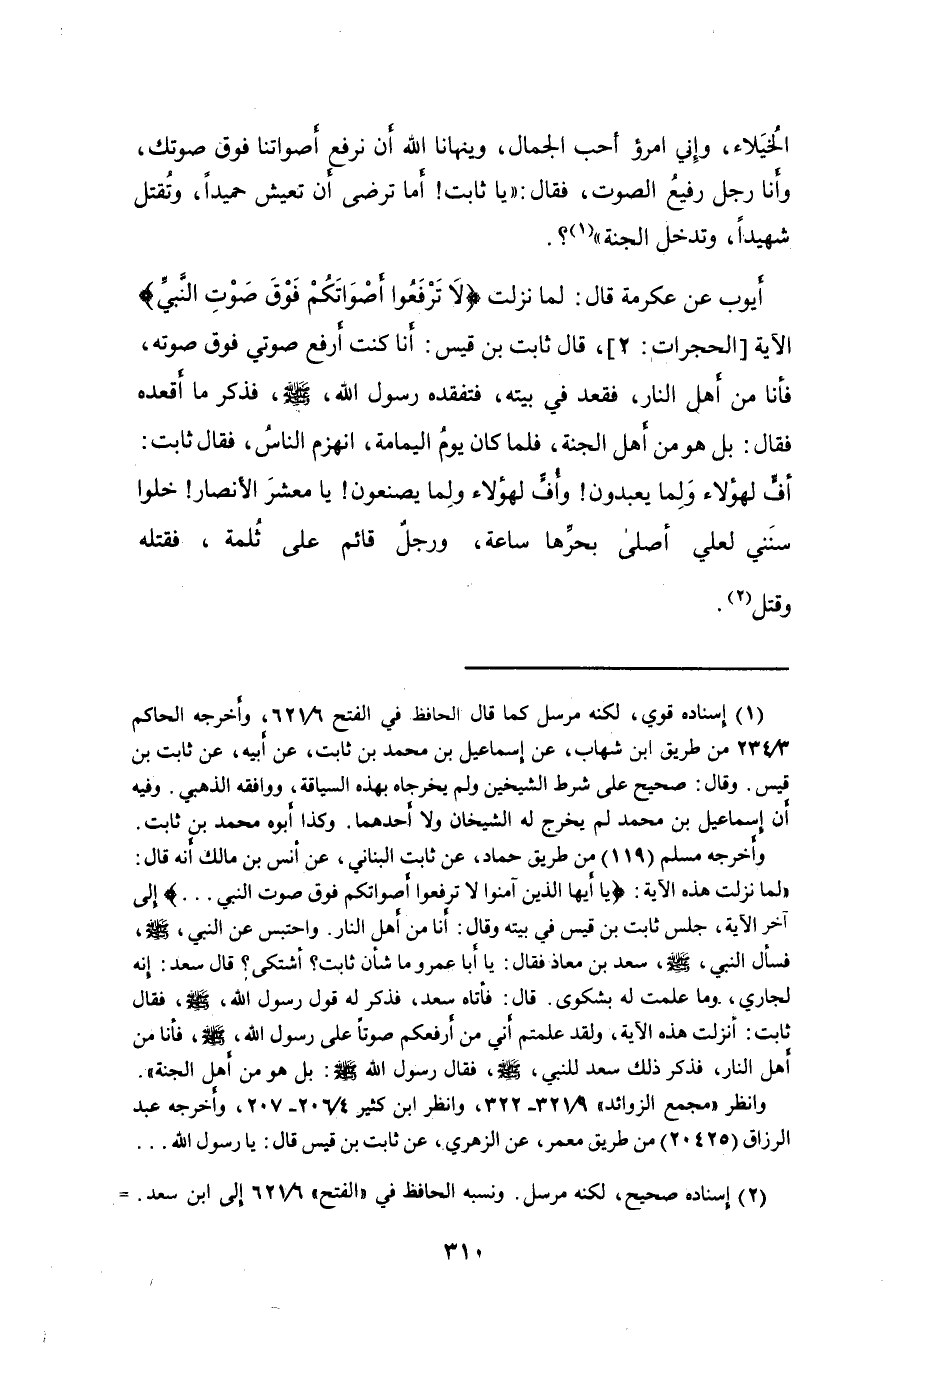 الُخيَلاء، وإني امرؤ أحب الجمال، وينهانا الله أَن نرفع أَصواتنا فوق صوتك،
وأَنا رجل رفيعُ الصوت، فقال: «يا ثابت! أَما ترضى أَن تعيش حميداً، وتُقتل
شهيداً، وتدخل الجنة»(١)؟.
أَيوب عن عكرمة قال: لما نزلت ﴿لَا تَرْفَعُوا أَصْوَاتَكُمْ فَوْقَ صَوْتِ النَّبيِّ﴾
الآية [الحجرات: ٢]، قال ثابت بن قيس: أَنا كنت أَرفع صوتي فوق صوته،
فأَنا من أَهل النار، فقعد في بيته، فتفقده رسول الله، ﷺ، فذكر ما أَقعده
فقال: بل هو من أَهل الجنة، فلما كان يومُ اليمامة، انهزم الناسُ، فقال ثابت:
أُفٍّ لهؤلاء وَلِما يعبدون! وأُفٍّ لهؤلاء ولِما يصنعون! يا معشرَ الأنصار! خلوا
سنَني لعلي أصلىٰ بحرِّها ساعة، ورجلٌ قائم على ثُلمة ، فقتله
وقتل(٢).
(١) إسناده قوي، لكنه مرسل كما قال الحافظ في الفتح ٦٢١/٦، وأَخرجه الحاكم
٢٣٤/٣ من طريق ابن شهاب، عن إسماعيل بن محمد بن ثابت، عن أَبيه، عن ثابت بن
قيس. وقال: صحيح على شرط الشيخين ولم يخرجاه بهذه السياقة، ووافقه الذهبي. وفيه
أَن إسماعيل بن محمد لم يخرج له الشيخان ولا أَحدهما. وكذا أَبوه محمد بن ثابت.
وأَخرجه مسلم (١١٩) من طريق حماد، عن ثابت البناني، عن أنس بن مالك أَنه قال:
«لما نزلت هذه الآية: ﴿يا أَيها الذين آمنوا لا ترفعوا أَصواتكم فوق صوت النبي . . .﴾ إلى
آخر الآية، جلس ثابت بن قيس في بيته وقال: أَنا من أَهل النار. واحتبس عن النبي، ﷺ،
فسأَل النبي، ﷺ، سعد بن معاذ فقال: يا أَبا عمرو ما شأن ثابت؟ أشتكى؟ قال سعد: إنه
لجاري، وما علمت له بشكوى. قال: فأَتاه سعد، فذكر له قول رسول الله، ﷺ، فقال
ثابت: أُنزلت هذه الآية، ولقد علمتم أَني من أَرفعكم صوتاً على رسول الله، ﷺ، فأَنا من
أَهل النار، فذكر ذلك سعد للنبي، ﷺ، فقال رسول الله ﷺ: بل هو من أَهل الجنة».
وانظر «مجمع الزوائد» ٣٢١/٩ـ ٣٢٢، وانظر ابن كثير ٢٠٦/٤ـ ٢٠٧، وأَخرجه عبد
الرزاق (٢٠٤٢٥) من طريق معمر، عن الزهري، عن ثابت بن قيس قال: يا رسول الله . . .
(٢) إسناده صحيح، لكنه مرسل. ونسبه الحافظ في «الفتح» ٦٢١/٦ إلى ابن سعد. =
٣١٠